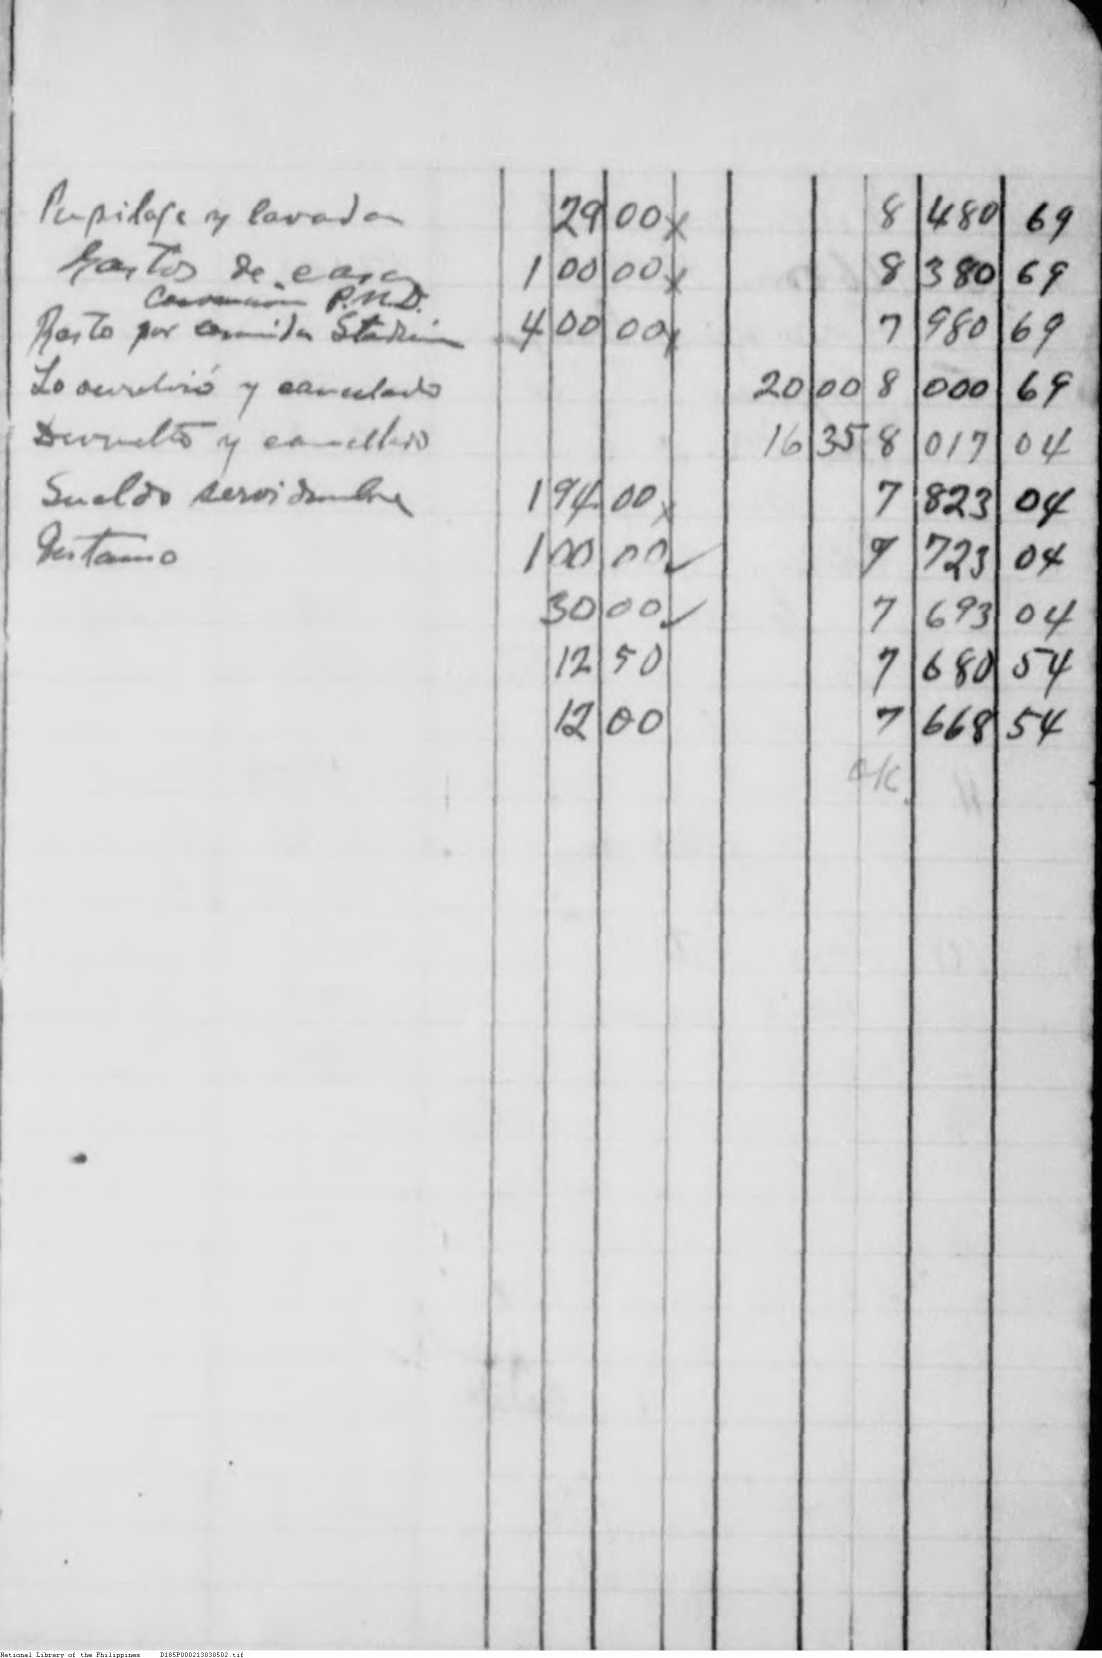 Pupilaje y lavado 29 00 x 8 480 69
Gastos de casa 1 00 00 x 8 380 69
Convención P.N.D.
Resto por comida Stadium 4 00 00 x 7 980 69
Lo y cancelado 20 00 8 000 69
Devuelto y cancelado 16 35 8 017 04
Sueldo servidumbre 1 94 00 x 7 823 04
1 00 00 ✓ 7 723 04
30 00 ✓ 7 693 04
12 50 7 680 54
12 00 7 668 54
O/K.
National Library of the Philippines D185P000213838502.tif